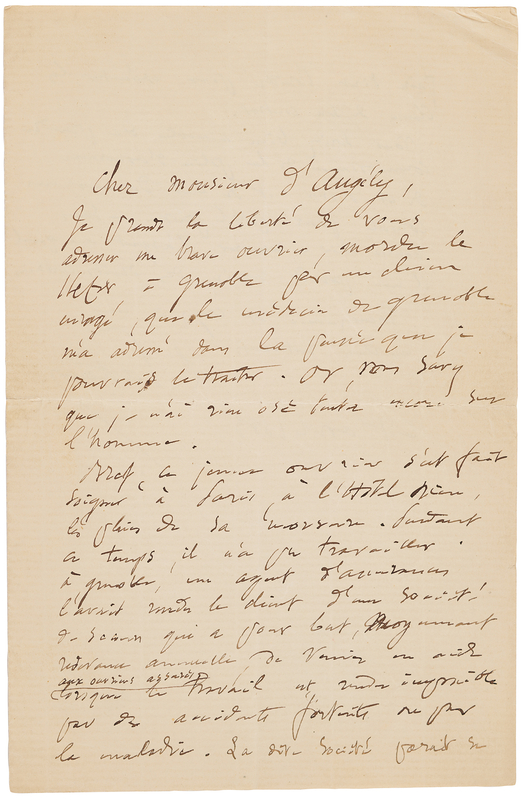 Cher monsieur d'Augély,
Je prends la liberté de vous
adresser un brave ouvrier, mordu le
à Grenoble par un chien
enragé, que le médecin de Grenoble
m'a adressé dans la pensée que je
pourrais le traiter. Or, vous savez
que je n'ai rien osé tenter encore sur
l'homme.
Bref, ce jeune ouvrier s'est fait
soigner à Paris, à l'Hôtel Dieu,
les plaies de sa morsure. Pendant
ce temps, il n'a pu travailler.
à Grenoble, un agent d'assurances
l'avait rendu le client d'une Société
de secours qui a pour but, moyennant
redevance annuelle, de venir en aide
aux ouvriers assurés
lorsque le travail est rendu impossible
par des accidents fortuits ou par
la maladie. La dite Société paraît se